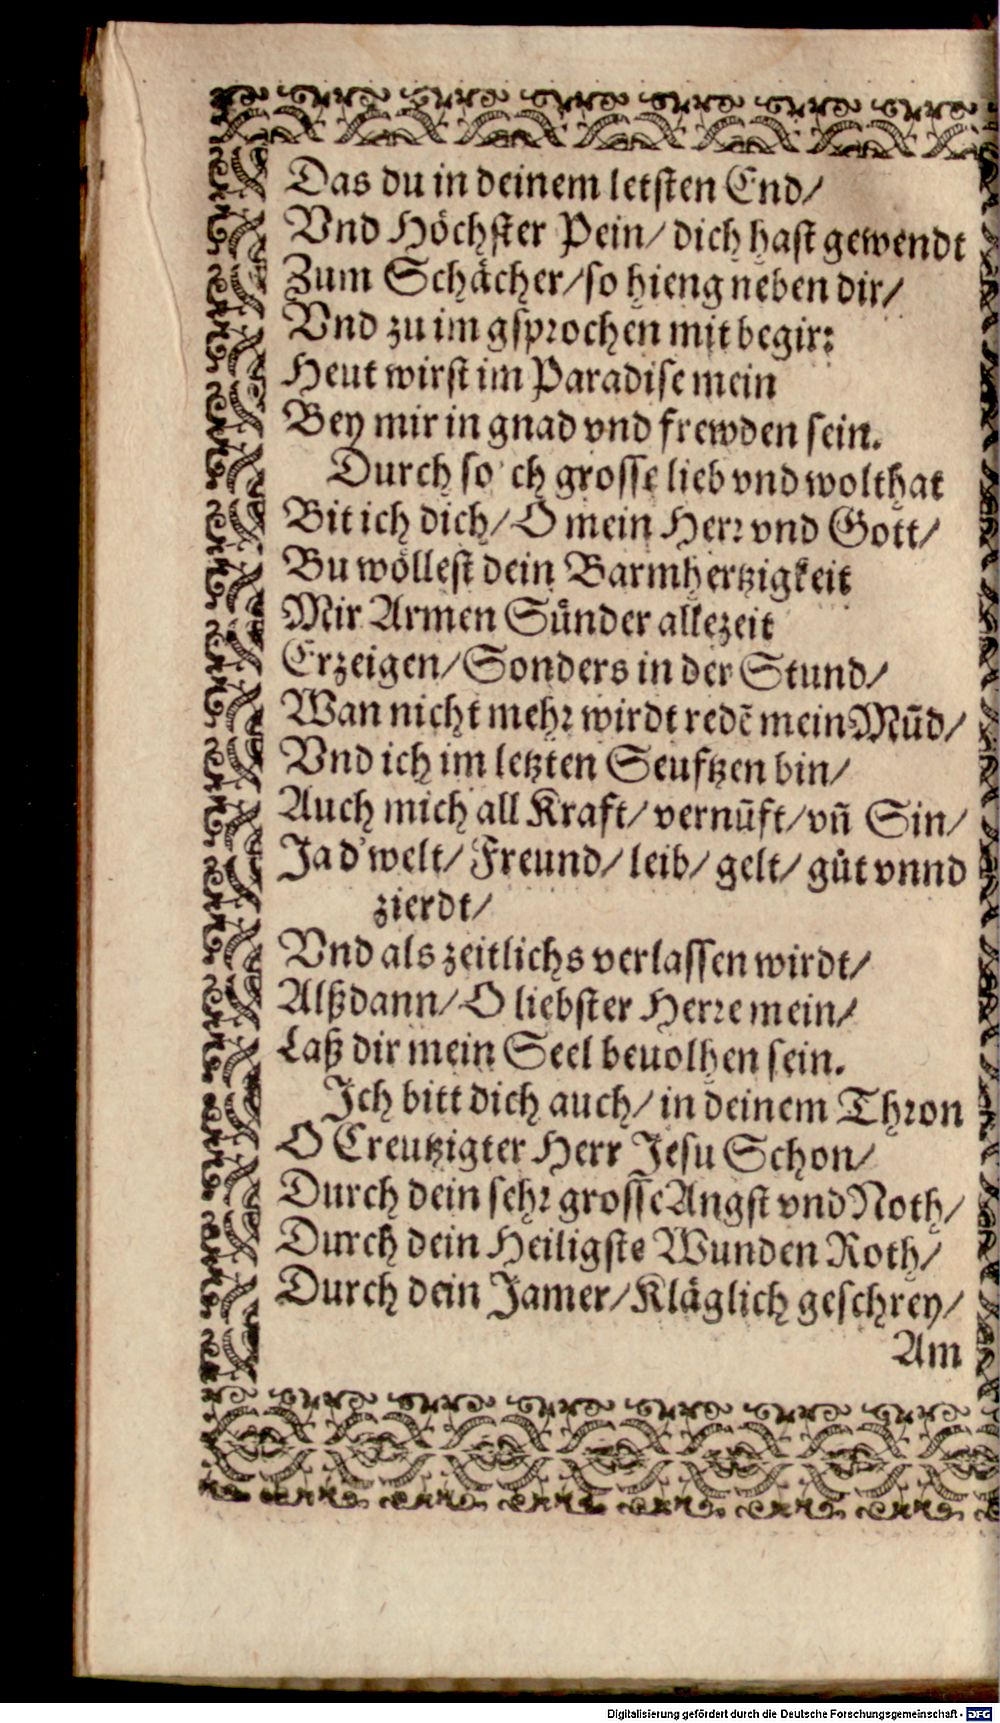 Das du in deinem letsten End/
Vnd Höchster Pein/ dich hast gewendt
Zum Schächer/ so hieng neben dir/
Vnd zu im gsprochen mit begir:
Heut wirst im Paradise mein
Bey mir in gnad vnd frewden sein.
Durch so ch grosse lieb vnd wolthat
Bit ich dich/ O mein Herr vnd Gott/
Bu wöllest dein Barmhertzigkeit
Mir Armen Sünder allezeit
Erzeigen/ Sonders in der Stund/
Wan nicht mehr wirdt redẽ mein Mũd/
Vnd ich im letzten Seuftzen bin/
Auch mich all Kraft/ vernũft/ vñ Sin/
Ja d' welt/ Freund/ leib/ gelt/ gůt vnnd
zierdt/
Vnd als zeitlichs verlassen wirdt/
Alßdann/ O liebster Herre mein/
Laß dir mein Seel beuolhen sein.
Ich bitt dich auch/ in deinem Thron
O Creutzigter Herr Jesu Schon/
Durch dein sehr grosse Angst vnd Noth/
Durch dein Heiligste Wunden Roth/
Durch dein Jamer/ Kläglich geschrey/
Am
Digitalisierung gefördert durch die Deutsche Forschungsgemeinschaft - DFG